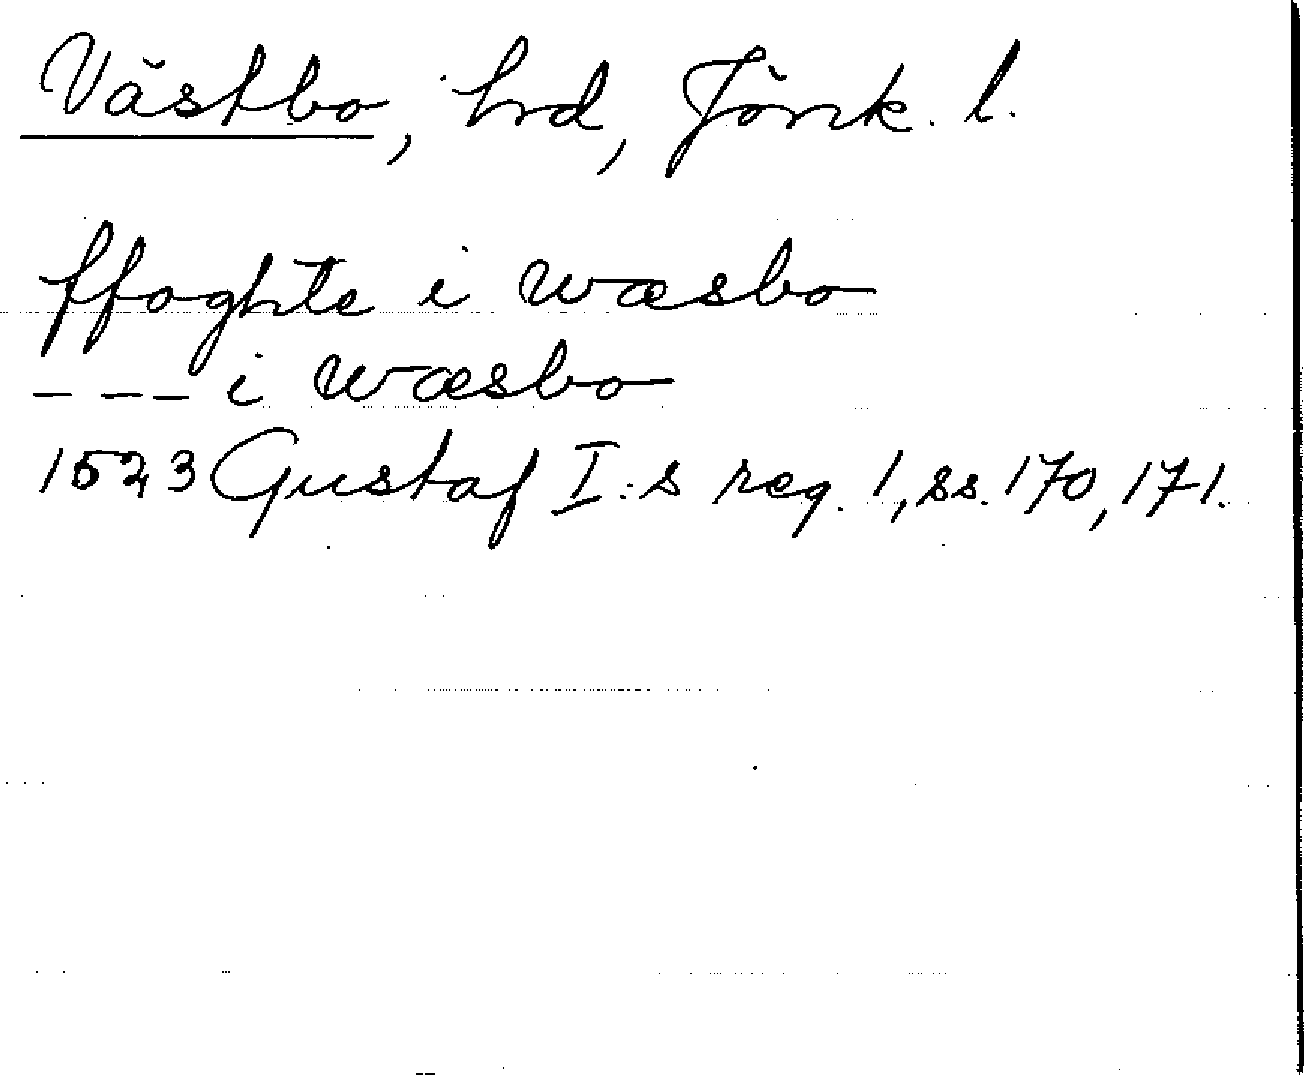 Västbo, hd, Jönk. l.
ffoghte i wæsbo
– – – i wæsbo
1523 Gustaf I:s reg. 1, ss. 170, 171.